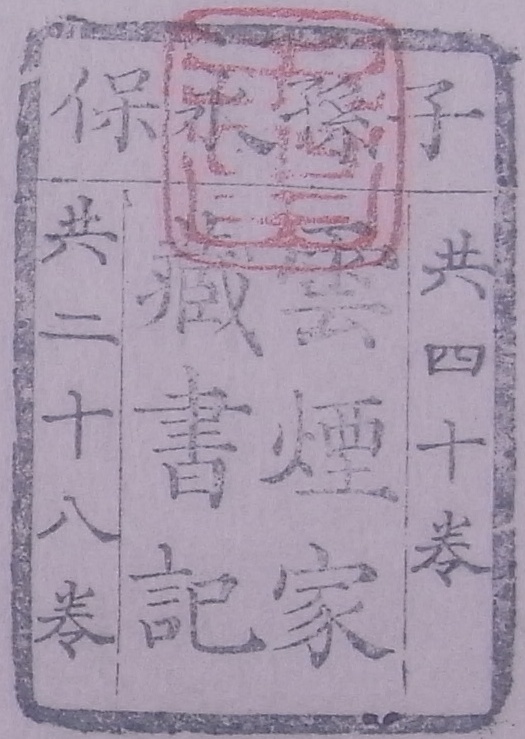 子孫永保
共四十卷
雲煙家
藏書記
共二十八卷